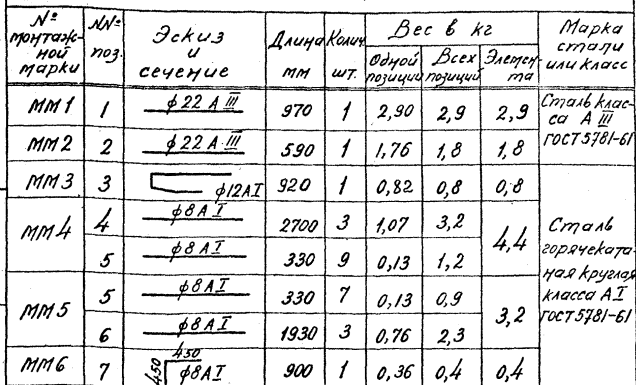 № монтажной марки | №№ поз. | Эскиз и сечение | Длина мм | Колич. шт. | Вес в кг | Марка стали или класс
Одной позиции | Всех позиций | Элемента
ММ1 | 1 | ϕ22 А III | 970 | 1 | 2,90 | 2,9 | 2,9 | Сталь класса А III ГОСТ 5781-61
ММ2 | 2 | ϕ22 А III | 590 | 1 | 1,76 | 1,8 | 1,8
ММ3 | 3 | ϕ12АI | 920 | 1 | 0,82 | 0,8 | 0,8 | Сталь горячекатаная круглая класса АI ГОСТ 5781-61
ММ4 | 4 | ϕ8АI | 2700 | 3 | 1,07 | 3,2 | 4,4
5 | ϕ8АI | 330 | 9 | 0,13 | 1,2
ММ5 | 5 | ϕ8АI | 330 | 7 | 0,13 | 0,9 | 3,2
6 | ϕ8АI | 1930 | 3 | 0,76 | 2,3
ММ6 | 7 | 450 450 ϕ8АI | 900 | 1 | 0,36 | 0,4 | 0,4